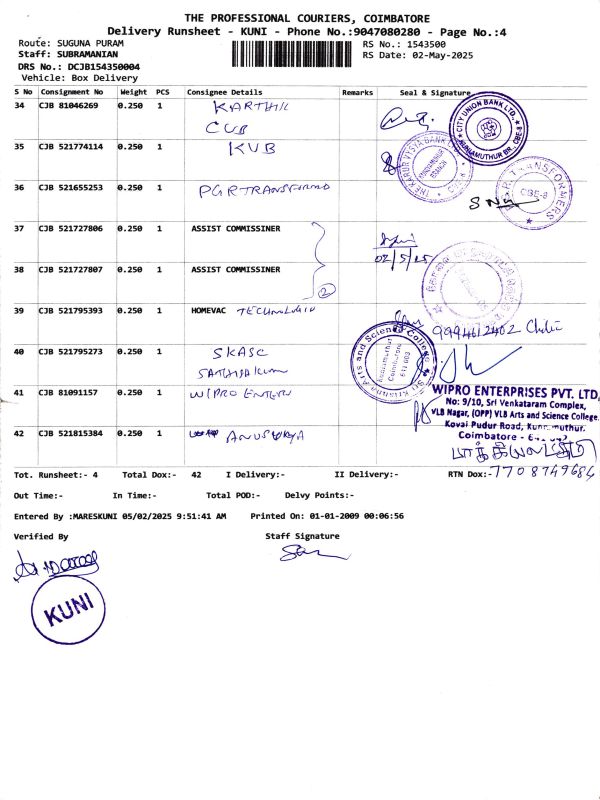 THE PROFESSIONAL COURIERS, COIMBATORE
Delivery Runsheet - KUNI - Phone No.:9047080280 - Page No.:4
Route: SUGUNA PURAM
RS No.: 1543500
Staff: SUBRAMANIAN
RS Date: 02-May-2025
DRS No.: DCJB154350004
Vehicle: Box Delivery
S No Consignment No Weight PCS Consignee Details Remarks Seal & Signature
34 CJB 81046269 0.250 1 KARTHIK
CUB
CITY UNION BANK LTD.
KUNIAMUTHUR BR., CBE-8
35 CJB 521774114 0.250 1 KVB
THE KARUR VYSYA BANK
KUNIAMUTHUR
BRANCH
36 CJB 521655253 0.250 1 PGR TRANSFORMO
P.G.R. TRANSFORMERS
CBE-8
37 CJB 521727806 0.250 1 ASSIST COMMISSINER
02/5/25
38 CJB 521727807 0.250 1 ASSIST COMMISSINER
2
39 CJB 521795393 0.250 1 HOMEVAC
9994612402
40 CJB 521795273 0.250 1 SKASC
Sri Krishna Arts and Science College
Kuniamuthur
Coimbatore
641 008
41 CJB 81091157 0.250 1 WIPRO ENTERP
WIPRO ENTERPRISES PVT. LTD
No: 9/10, Sri Venkataram Complex,
VLB Nagar, (OPP) VLB Arts and Science College.
Kovai Pudur Road, Kuniamuthur.
Coimbatore -
42 CJB 521815384 0.250 1
7708749684
Tot. Runsheet:- 4 Total Dox:- 42 I Delivery:- II Delivery:- RTN Dox:-
Out Time:- In Time:- Total POD:- Delvy Points:-
Entered By :MARESKUNI 05/02/2025 9:51:41 AM Printed On: 01-01-2009 00:06:56
Verified By Staff Signature
KUNI